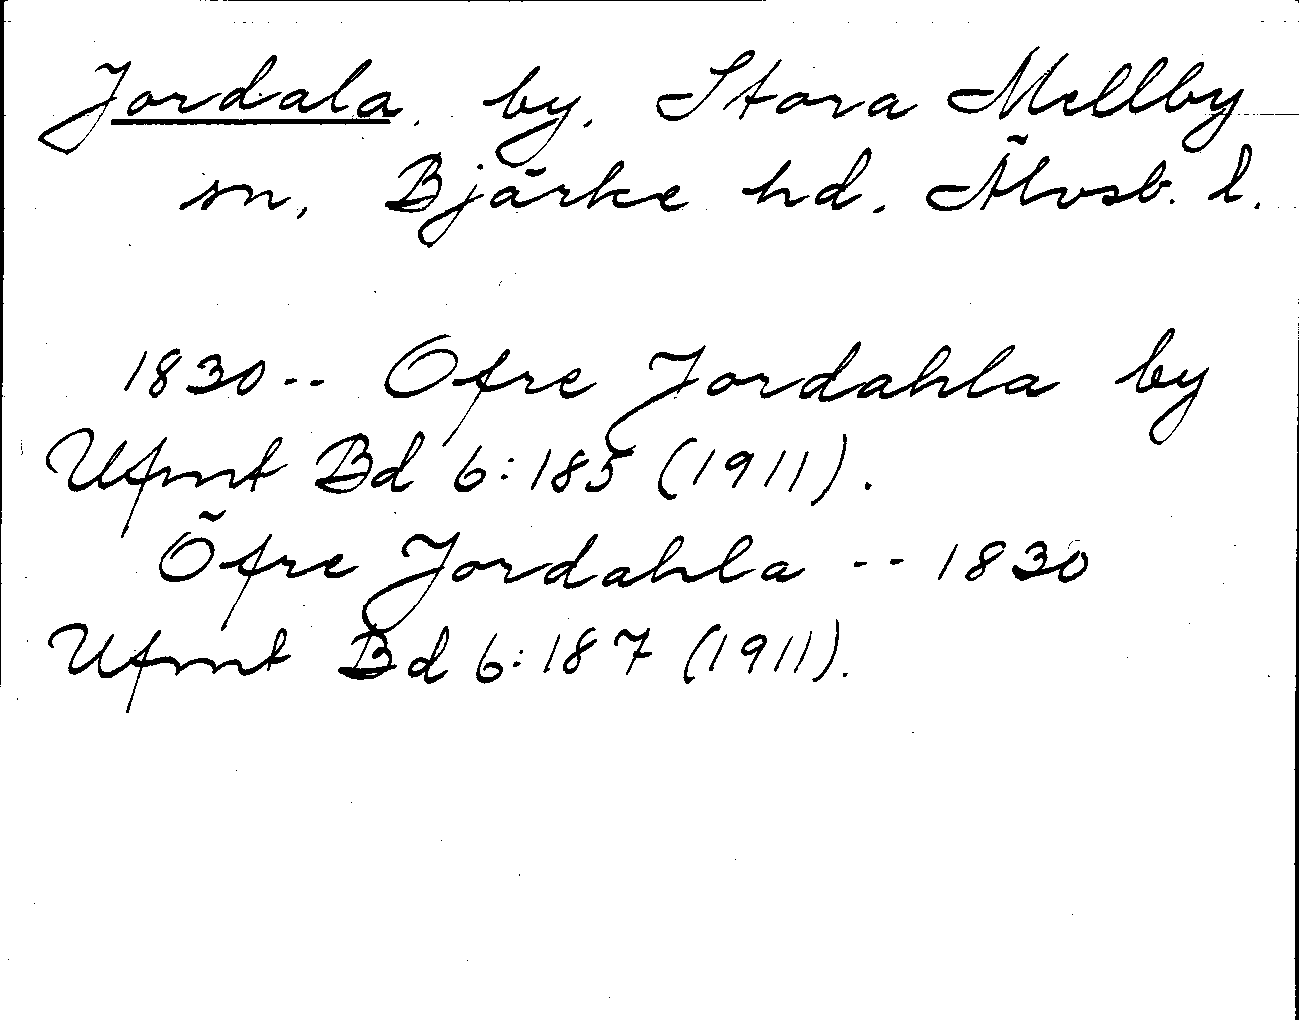 Jordala. by. Stora Mellby
sn, Bjärke hd. Älvsb. l.
1830-- Ofre Jordahla by
Ufmt Bd 6:185 (1911).
Öfre Jordahla -- 1830
Ufmt Bd 6:187 (1911).